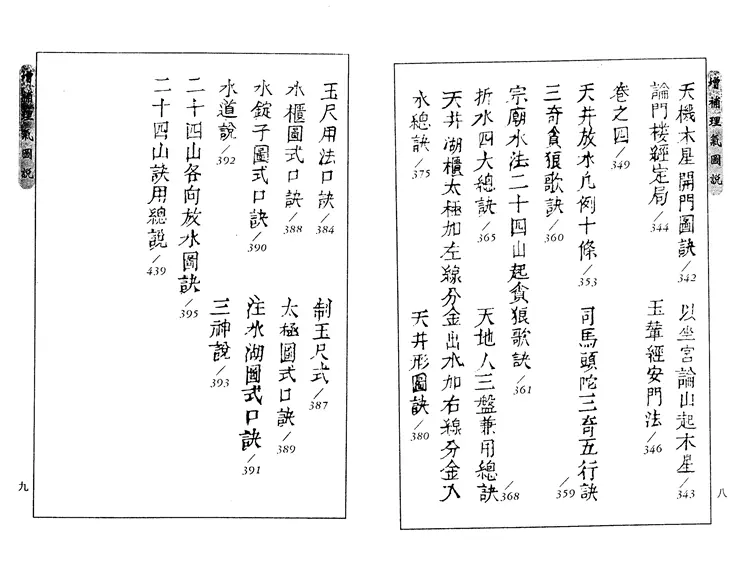 增補理氣圖說
天機木星開門圖訣/342
以坐宮論山起木星/343
論門楼經定局/344
玉輦經安門法/346
卷之四/349
天井放水凡例十條/353
司馬頭陀三奇五行訣/359
三奇貪狼歌訣/360
宗廟水法二十四山起貪狼歌訣/361
折水四大總訣/365
天地人三盤兼用總訣/368
天井湖櫃太極加左線分金出水加右線分金入
水總訣/375
天井形圖訣/380
八
玉尺用法口訣/384
制玉尺式/387
水櫃圖式口訣/388
太極圖式口訣/389
水錠子圖式口訣/390
注水湖圖式口訣/391
水道說/392
三神說/393
二十四山各向放水圖訣/395
二十四山訣用總說/439
增補理氣圖說
九